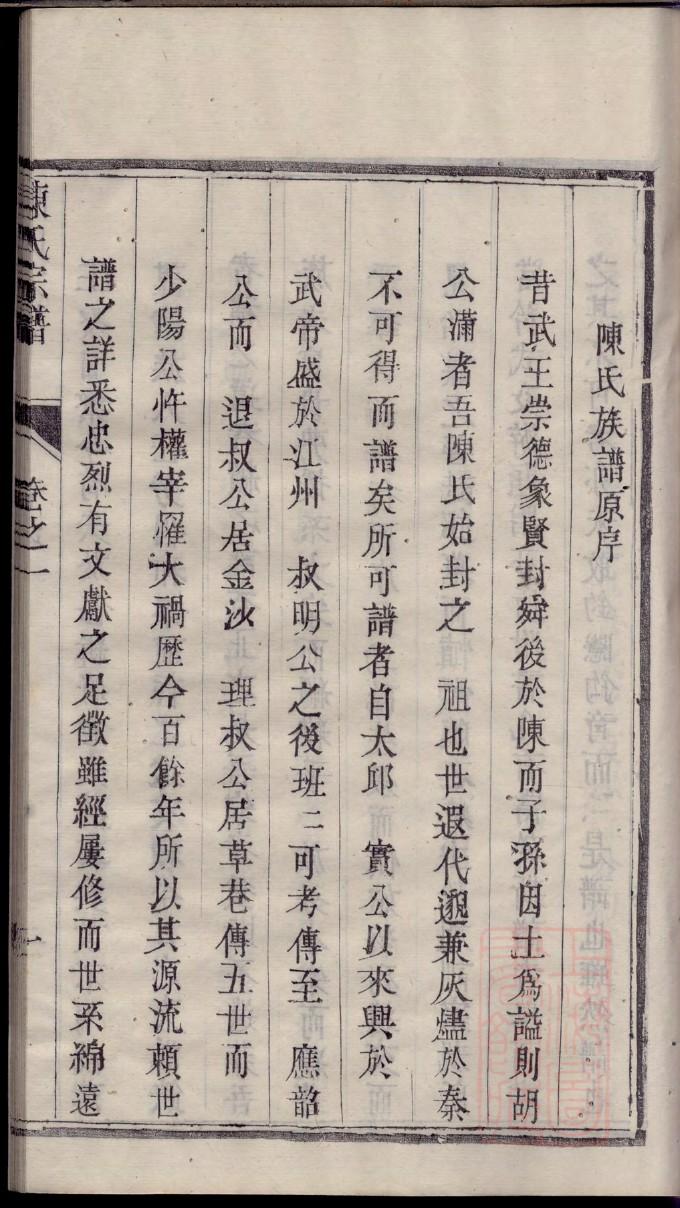 陳氏族譜原序
昔武王崇德象賢封舜後於陳而子孫因土爲謚則胡
公滿者吾陳氏始封之 祖也世遐代邈兼灰燼於秦
不可得而譜矣所可譜者自太邱 實公以來興於
武帝盛於江州 叔明公之後班二可考傳至 應韶
公而 退叔公居金沙 理叔公居草巷傳五世而
少陽公忤權宰罹大禍歷今百餘年所以其源流賴世
譜之詳悉忠烈有文獻之足徵雖經屢修而世系綿遠
陳氏宗譜 卷之一 一